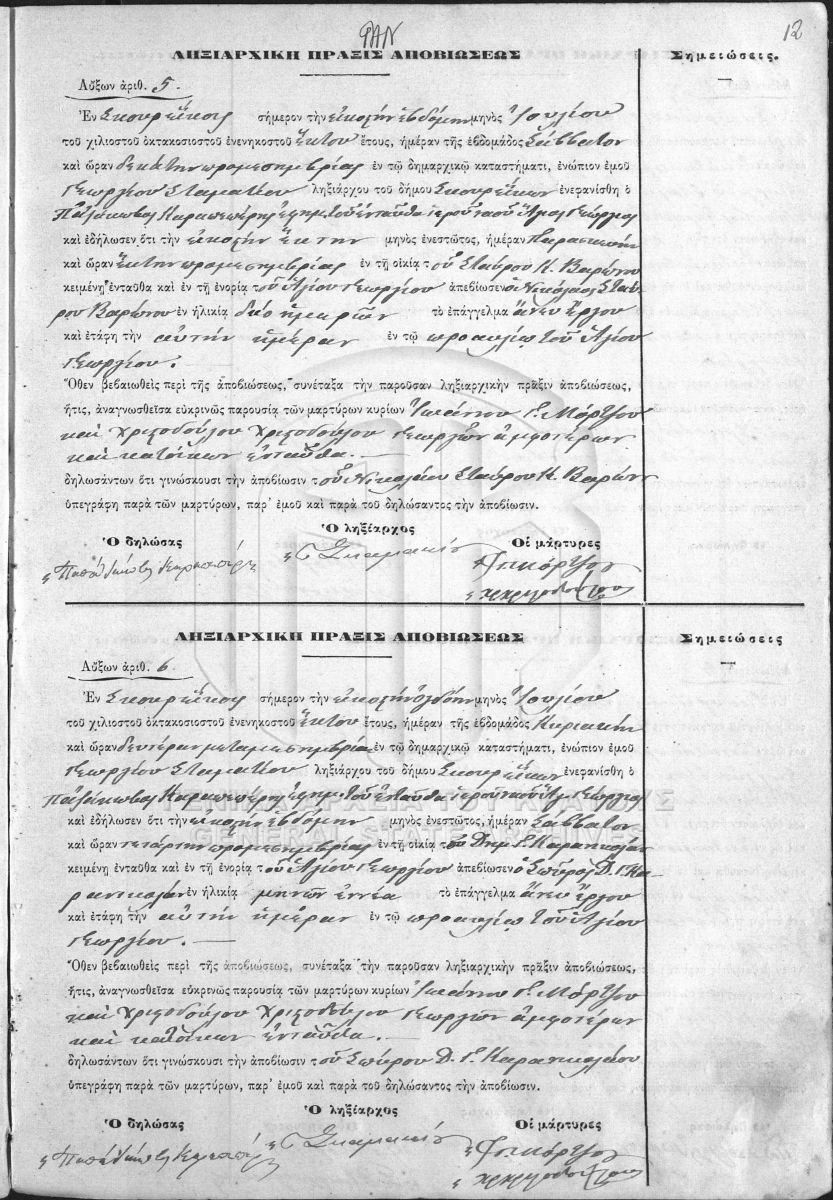 ΦΑΝ
12
ΛΗΞΙΑΡΧΙΚΗ ΠΡΑΞΙΣ ΑΠΟΒΙΩΣΕΩΣ
Σημειώσεις.
Αὔξων ἀριθ. 5.
Ἐν σήμερον τὴν εἰκοστὴν ἑβδόμην μηνὸς Ἰουλίου
τοῦ χιλιοστοῦ ὀκτακοσιοστοῦ ἐνενηκοστοῦ ἕκτου ἔτους, ἡμέραν τῆς ἑβδομάδος Σάββατον
καὶ ὥραν δεκάτην προμεσημβρίας ἐν τῷ δημαρχικῷ καταστήματι, ἐνώπιον ἐμοῦ
Γεωργίου Σταματίου ληξιάρχου τοῦ δήμου ἐνεφανίσθη ὁ
Ἅγιος Γεώργιος
καὶ ἐδήλωσεν ὅτι τὴν εἰκοστὴν ἕκτην μηνὸς ἐνεστῶτος, ἡμέραν Παρασκευὴν
καὶ ὥραν ἕκτην προμεσημβρίας ἐν τῇ οἰκίᾳ τοῦ Σταύρου Κ. Βαρώνου
κειμένῃ ἐνταῦθα καὶ ἐν τῇ ἐνορίᾳ τοῦ Ἁγίου Γεωργίου ἀπεβίωσεν ὁ Νικόλαος Σταύ-
ρου Βαρώνου ἐν ἡλικίᾳ δύο ἡμερῶν τὸ ἐπάγγελμα ἄνευ ἔργου
καὶ ἐτάφη τὴν αὐτὴν ἡμέραν ἐν τῷ προαυλίῳ τοῦ Ἁγίου
Γεωργίου.
Ὅθεν βεβαιωθεὶς περὶ τῆς ἀποβιώσεως, συνέταξα τὴν παροῦσαν ληξιαρχικὴν πρᾶξιν ἀποβιώσεως,
ἥτις, ἀναγνωσθεῖσα εὐκρινῶς παρουσίᾳ τῶν μαρτύρων κυρίων Ἰωάννου Γ.
καὶ Χριστοδούλου Χριστοδούλου γεωργῶν ἀμφοτέρων
καὶ κατοίκων ἐνταῦθα.
δηλωσάντων ὅτι γινώσκουσι τὴν ἀποβίωσιν τοῦ Νικολάου Σταύρου Κ. Βαρώνου
ὑπεγράφη παρὰ τῶν μαρτύρων, παρ' ἐμοῦ καὶ παρὰ τοῦ δηλώσαντος τὴν ἀποβίωσιν.
Ὁ δηλώσας
Ὁ ληξίαρχος
Οἱ μάρτυρες
ΛΗΞΙΑΡΧΙΚΗ ΠΡΑΞΙΣ ΑΠΟΒΙΩΣΕΩΣ
Σημειώσεις
Αὔξων ἀριθ. 6.
Ἐν σήμερον τὴν εἰκοστὴν ὀγδόην μηνὸς Ἰουλίου
τοῦ χιλιοστοῦ ὀκτακοσιοστοῦ ἐνενηκοστοῦ ἕκτου ἔτους, ἡμέραν τῆς ἑβδομάδος Κυριακὴν
καὶ ὥραν δευτέραν μεταμεσημβρίαν ἐν τῷ δημαρχικῷ καταστήματι, ἐνώπιον ἐμοῦ
Γεωργίου Σταματίου ληξιάρχου τοῦ δήμου ἐνεφανίσθη ὁ
Γεώργιος
καὶ ἐδήλωσεν ὅτι τὴν εἰκοστὴν ἑβδόμην μηνὸς ἐνεστῶτος, ἡμέραν Σάββατον
καὶ ὥραν τετάρτην προμεσημβρίας ἐν τῇ οἰκίᾳ τοῦ Δημ. Γ.
κειμένῃ ἐνταῦθα καὶ ἐν τῇ ἐνορίᾳ τοῦ Ἁγίου Γεωργίου ἀπεβίωσεν ὁ Σπῦρος Δ. Γ. Κα-
ἐν ἡλικίᾳ μηνῶν ἐννέα τὸ ἐπάγγελμα ἄνευ ἔργου
καὶ ἐτάφη τὴν αὐτὴν ἡμέραν ἐν τῷ προαυλίῳ τοῦ Ἁγίου
Γεωργίου.
Ὅθεν βεβαιωθεὶς περὶ τῆς ἀποβιώσεως, συνέταξα τὴν παροῦσαν ληξιαρχικὴν πρᾶξιν ἀποβιώσεως,
ἥτις, ἀναγνωσθεῖσα εὐκρινῶς παρουσίᾳ τῶν μαρτύρων κυρίων Ἰωάννου Γ.
καὶ Χριστοδούλου Χριστοδούλου γεωργῶν ἀμφοτέρων
καὶ κατοίκων ἐνταῦθα.
δηλωσάντων ὅτι γινώσκουσι τὴν ἀποβίωσιν τοῦ Σπύρου Δ. Γ.
ὑπεγράφη παρὰ τῶν μαρτύρων, παρ' ἐμοῦ καὶ παρὰ τοῦ δηλώσαντος τὴν ἀποβίωσιν.
Ὁ δηλώσας
Ὁ ληξίαρχος
Οἱ μάρτυρες
GENERAL STATE ARCHIVES